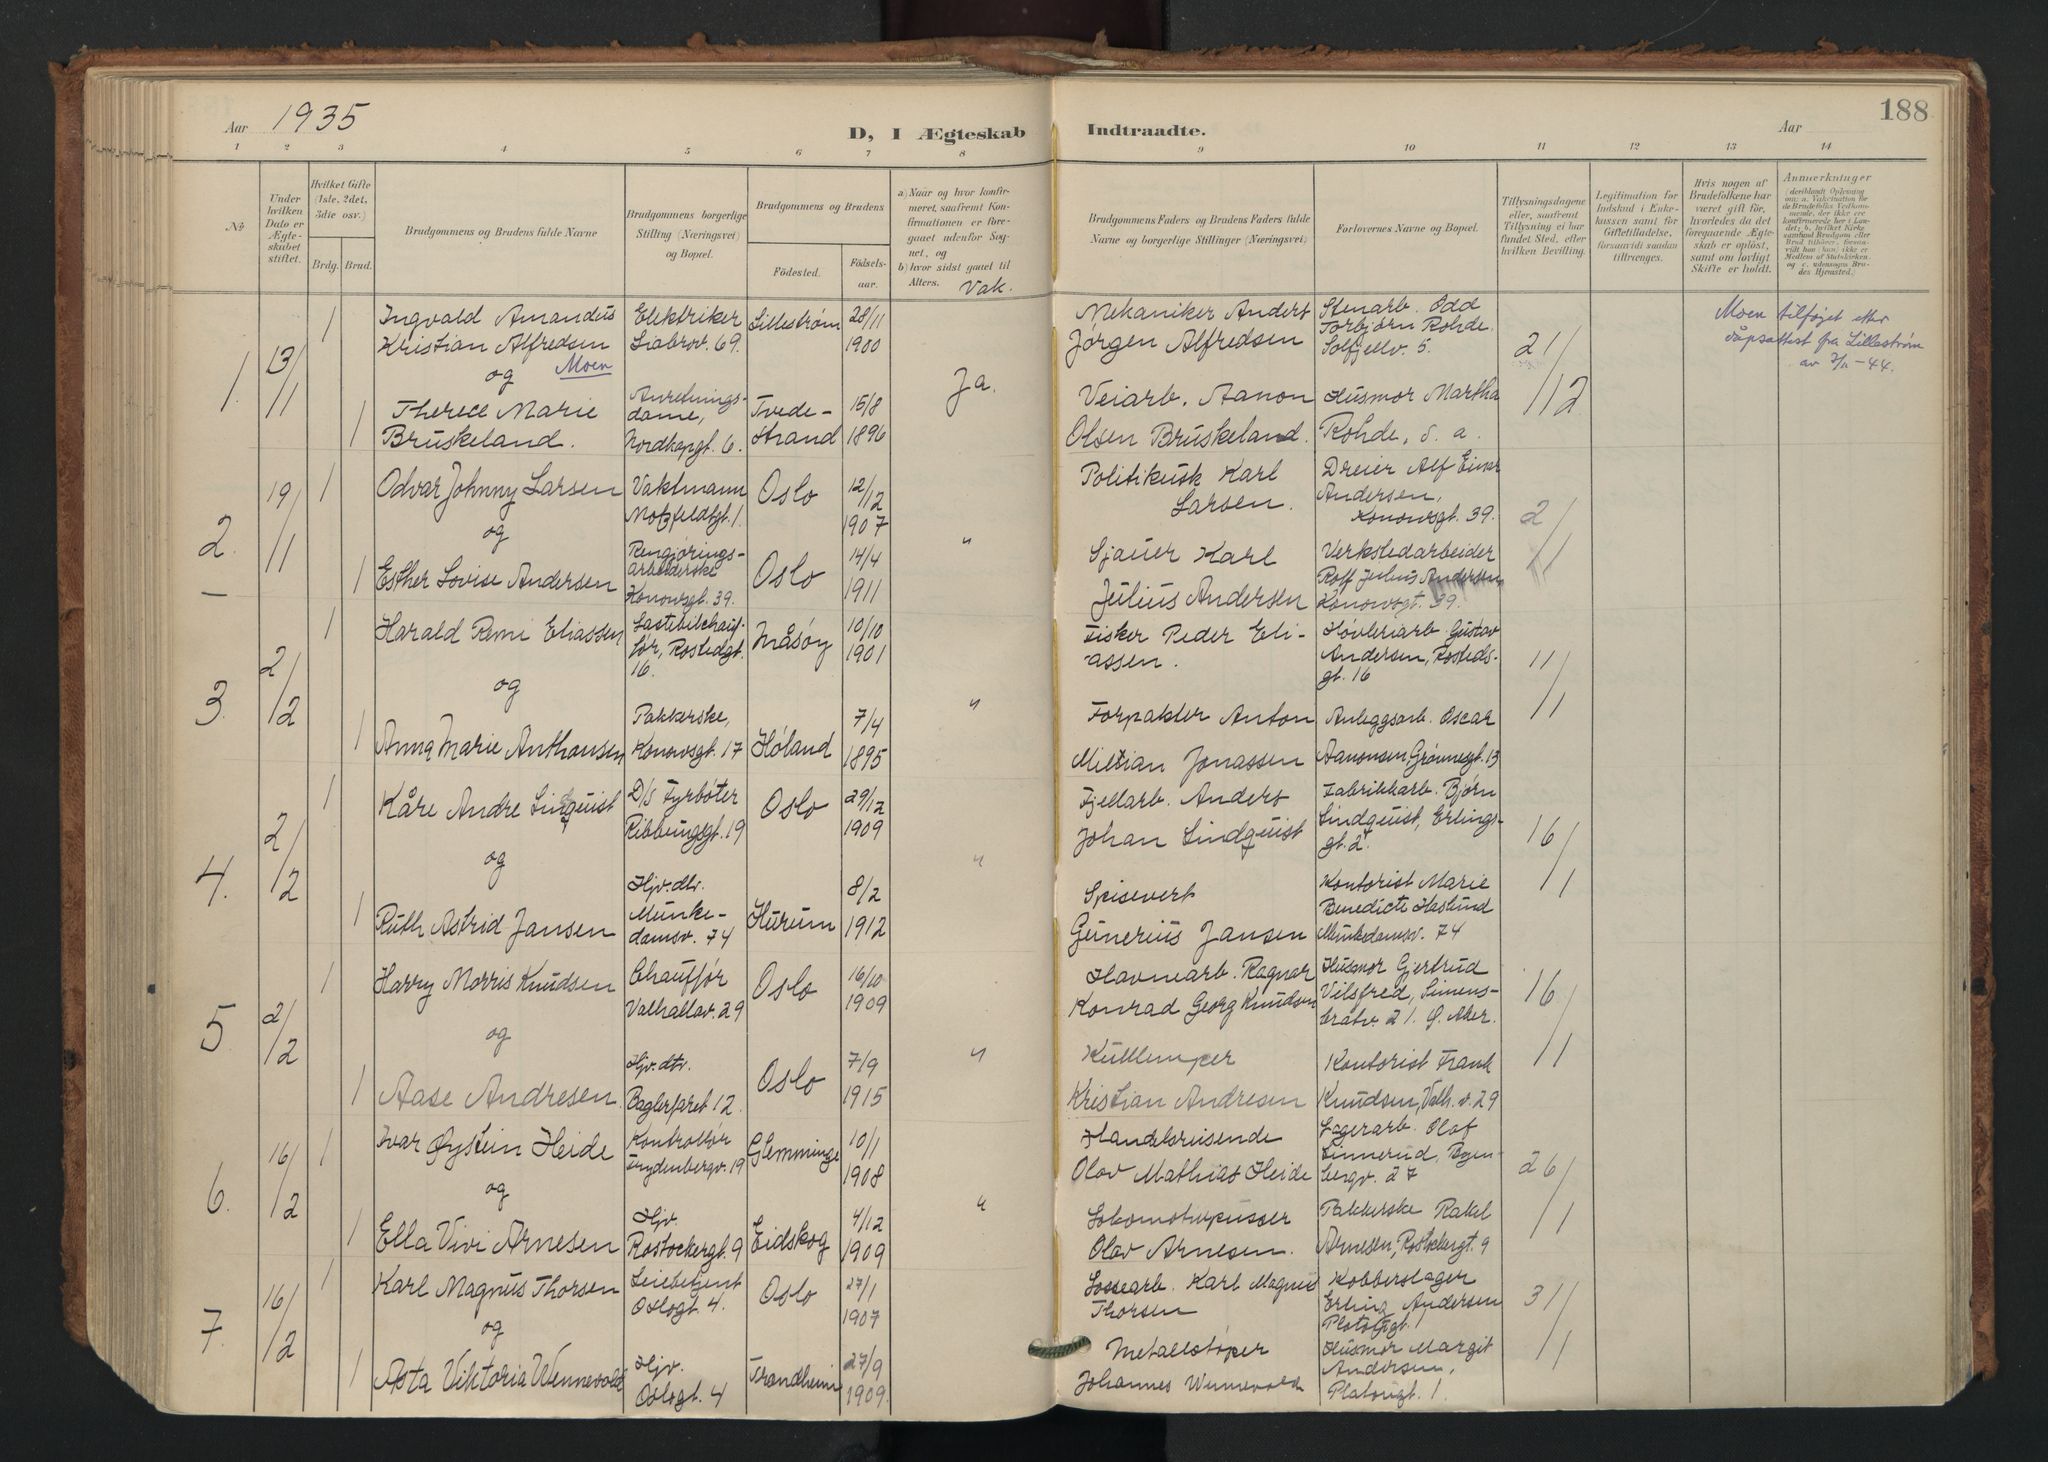 Aar 1935
D, I Ægteskab Indtraadte.
Aar
188
1 2 3 4 5 6 7 8 9 10 11 12 13 14
№
Under hvilken Dato er Ægteskabet stiftet.
Hvilket Gifte (1ste, 2det, 3die osv.)
Brdg. Brud.
Brudgommens og Brudens fulde Navne
Brudgommens borgerlige Stilling (Næringsvei) og Bopæl.
Brudgommens og Brudens
Fødested.
Fødsels-aar.
a) Naar og hvor konfirmeret, saafremt Konfirmationen er foregaaet udenfor Sognet, og
b) hvor sidst gaaet til Alters.
Vak.
Brudgommens Faders og Brudens Faders fulde Navne og borgerlige Stillinger (Næringsvei)
Forlovernes Navne og Bopæl.
Tillysningsdagene eller, saafremt Tillysning ei har fundet Sted, efter hvilken Bevilling.
Legitimation for Indskud i Enkekassen samt for Giftetilladelse, forsaavidt saadan tiltrænges.
Hvis nogen af Brudefolkene har været gift før, hvorledes da det foregaaende Ægteskab er opløst, samt om lovligt Skifte er holdt.
Anmerkninger
1. 13/1
1 Ingvald Amandus Kristian Alfredsen Moen
Elektriker Liabrov. 69.
Lillestrøm
28/11 1900
Mekaniker Anders Jørgen Alfredsen
Stenarb. Odd Torbjørn Rohde. Solfjellv. 5.
21/12
Moen tilføjet etter dåpsattest fra Lillestrøm
og
Ja.
1 Therece Marie Bruskeland.
Anretningsdame, Nordkapgt. 6.
Tvede-strand
15/8 1896
Veiarb. Aanon Olsen Bruskeland.
Husmor Martha Rohde, s. a.
2. 19/1
1 Odvar Johnny Larsen
Vaktmann Motzfeldtgt. 1.
Oslo
12/12 1907
Politikusk Karl Larsen.
Dreier Alf Einar Andersen, Konowsgt. 39.
2/1
og
"
1 Esther Lovise Andersen
Rengjøringsarbeiderske Konowsgt. 39.
Oslo
14/4 1911
Sjauer Karl Julius Andersen
Verkstedarbeider Rolf Julius Andersen Konowsgt. 39.
3. 2/2
1 Harald Remi Eliassen
Lastebilchauffør, Rostedgt. 16.
Måsøy
10/10 1901
Fisker Peder Eliassen.
Høvleriarb. Gustav Andersen, Rostedsgt. 16
11/1
og
"
1 Anna Marie Anthonsen
Pakkerske, Konowsgt. 17
Høland
7/4 1895
Forpakter Anton Jonassen
Anleggsarb. Oscar Aanonsen, Grønnegt. 13
4. 2/2
1 Kåre Andre Lindquist
D/S Fyrbøter Ribbungsgt. 19
Oslo
29/12 1909
Fjellarb. Anders Johan Lindquist
Fabrikkarb. Bjørn Lindquist, Erlingsgt. 2.
16/1
og
"
1 Ruth Astrid Jansen
Hjv. dtr. Munkedamsv. 74
Hurum
8/2 1912
Spisevert Gunerius Jansen
Kontorist Marie Benedicte Haslund Munkedamsv. 74
5. 2/2
1 Harry Morris Knudsen
Chauffør Valhallav. 29
Oslo
16/10 1909
Havnearb. Ragnar Konrad Georg Knudsen
Husmor Gjertrud Vilsfred, Simensbratv. 21. Ø. Aker.
16/1
og
"
1 Aase Andresen
Hjv. dtr. Baglerfaret 12.
Oslo
7/9 1915
Kullemper Kristian Andresen
Kontorist Frank Knudsen, Valh. v. 29
6. 16/2
1 Ivar Øystein Heide
Kontrollør Frydenbergv. 19
Glemminge
10/1 1908
Handelsreisende Olav Mathias Heide
Lagerarb. Olaf Linnerud, 27
26/1
og
"
1 Ella Vivi Arnesen
Hjv. Rostockergt. 9
Eidskog
4/12 1909
Lokomotivpusser Olav Arnesen.
Pakkerske Rakel Arnesen, Rostockergt. 9
7. 16/2
1 Karl Magnus Thorsen
Leiebetjent Oslogt. 4.
Oslo
27/1 1907
Lossearb. Karl Magnus Thorsen
Kobberslager Erling Andersen Platougt. 1
31/1
og
1 Asta Viktoria Wennevold
Hjv. Oslogt. 4
Trondheim
27/9 1909.
Metallstøper Johannes Wennevold
Husmor Margit Andersen, Platougt. 1.